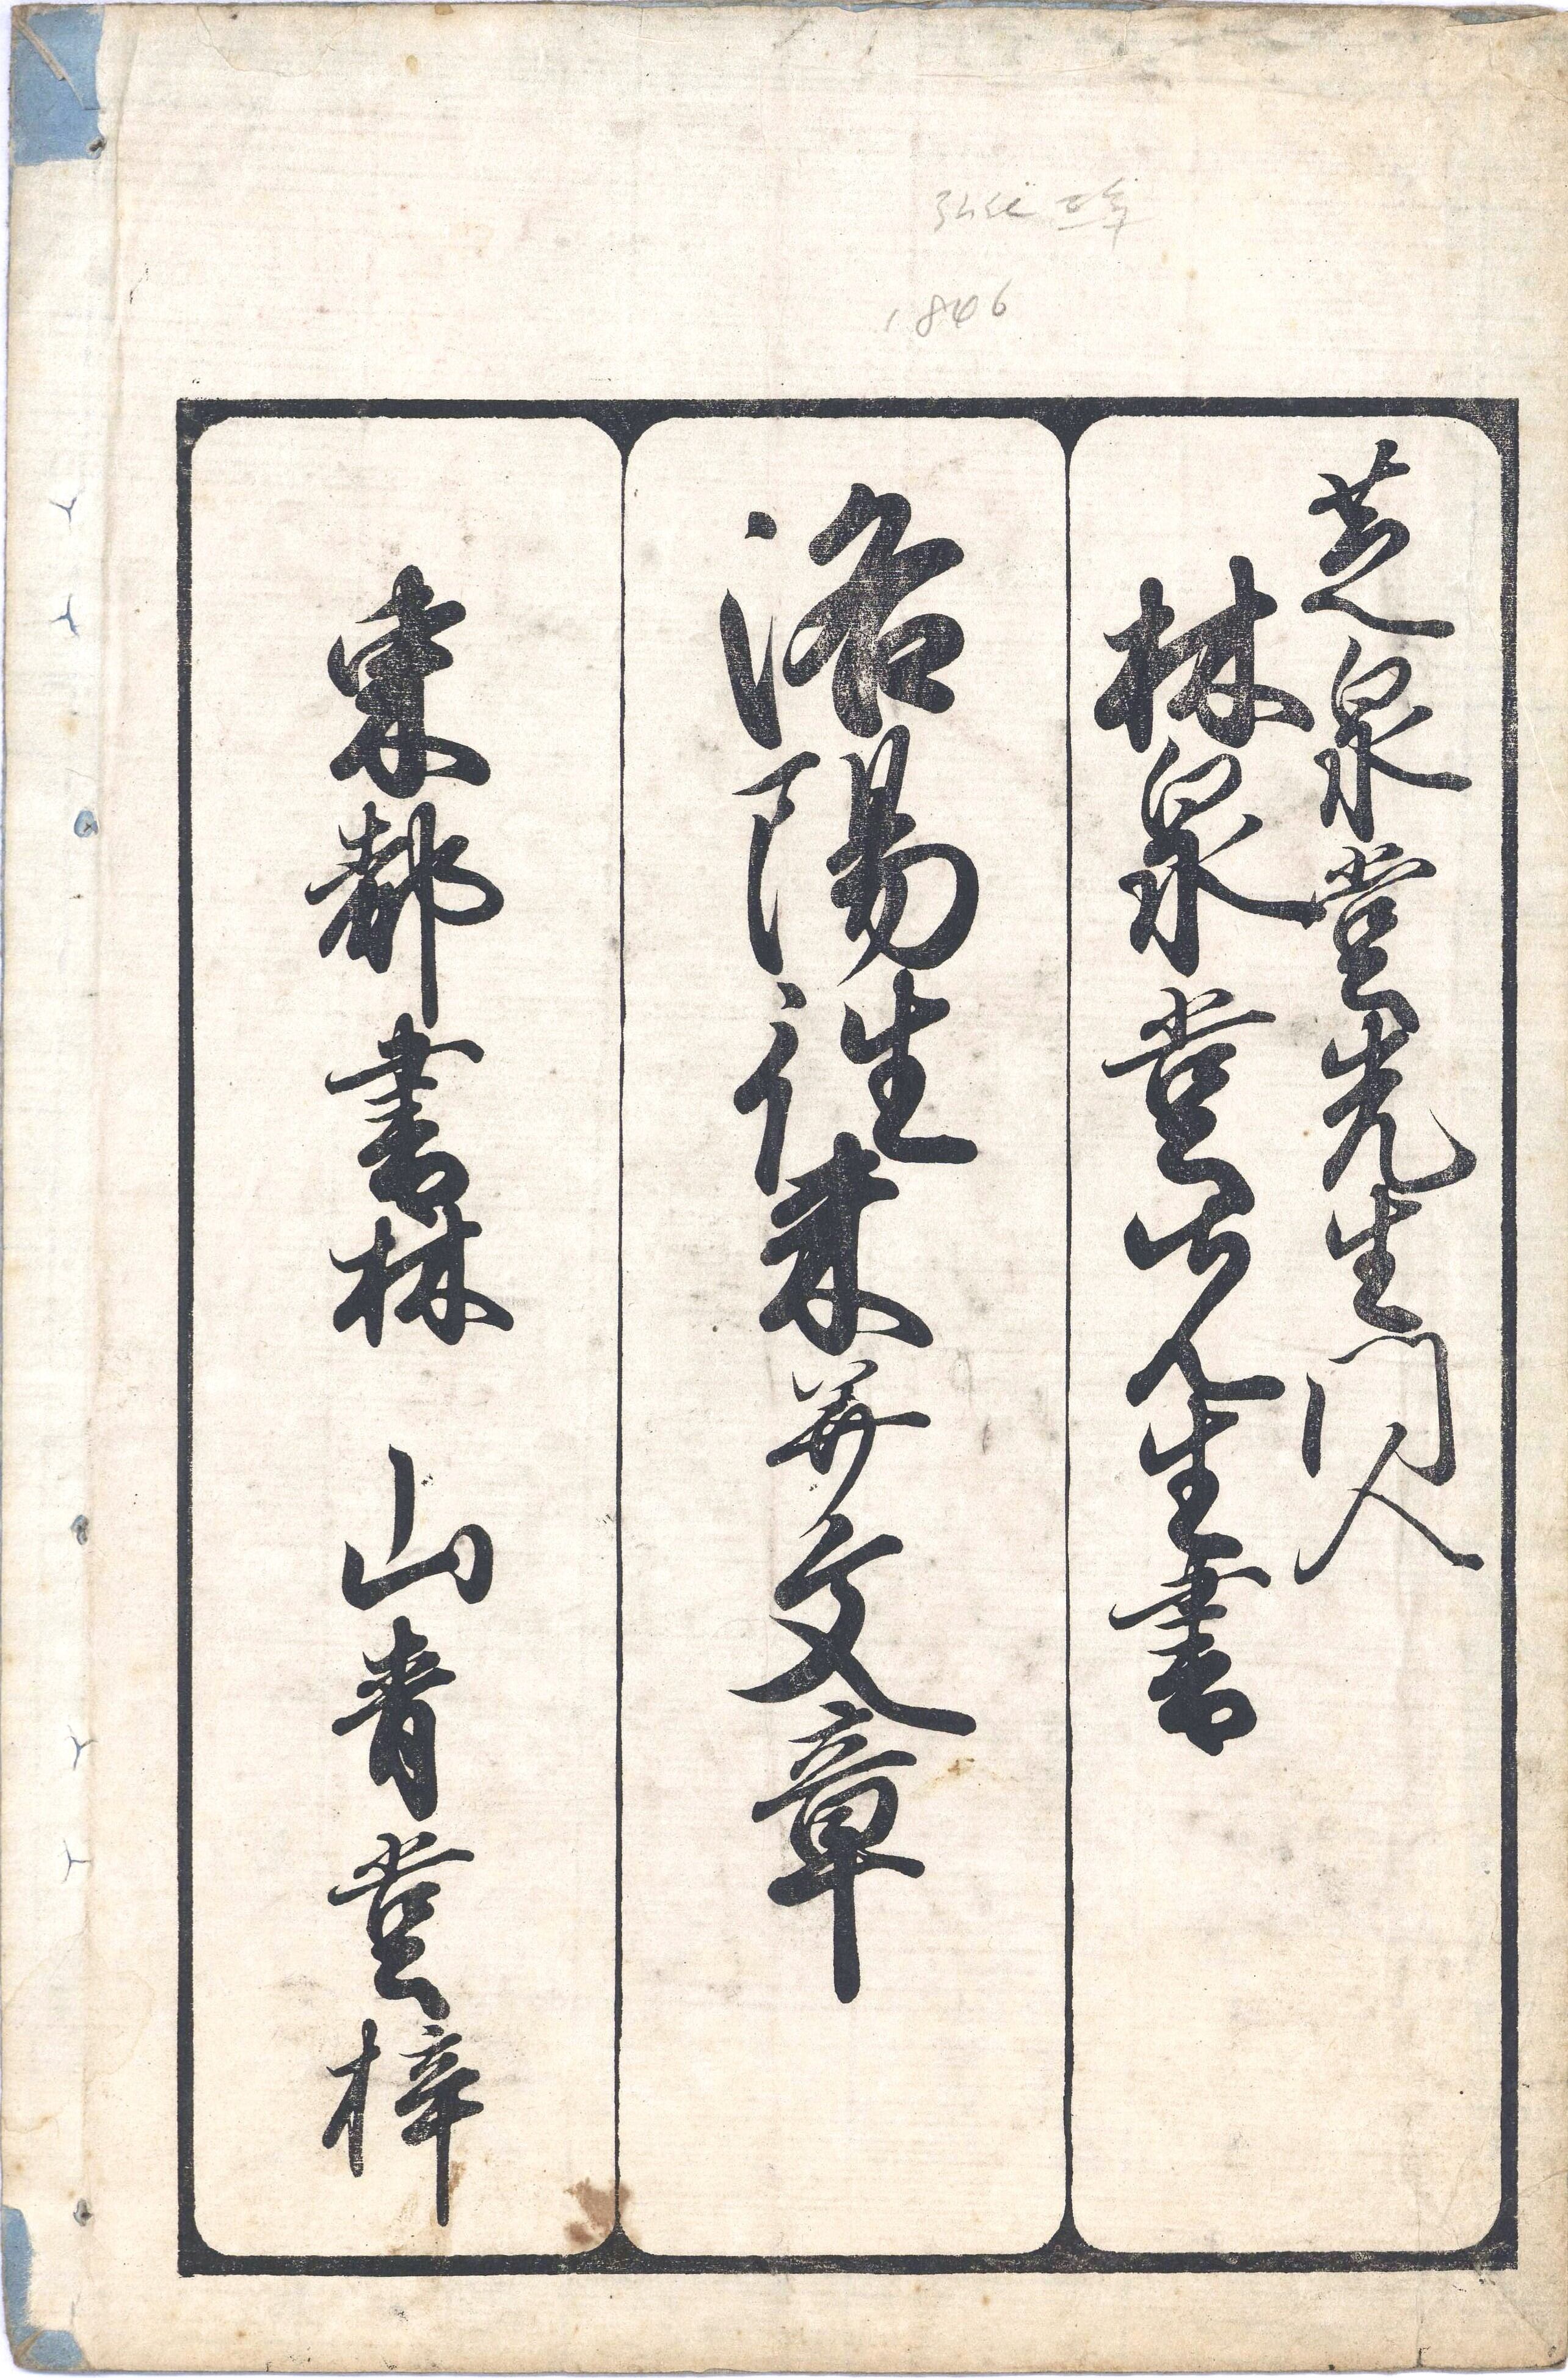 弘化 三年
1846
芝泉堂先生門人
林泉堂先生書
洛陽徃来并文章
東都書林 山青堂梓